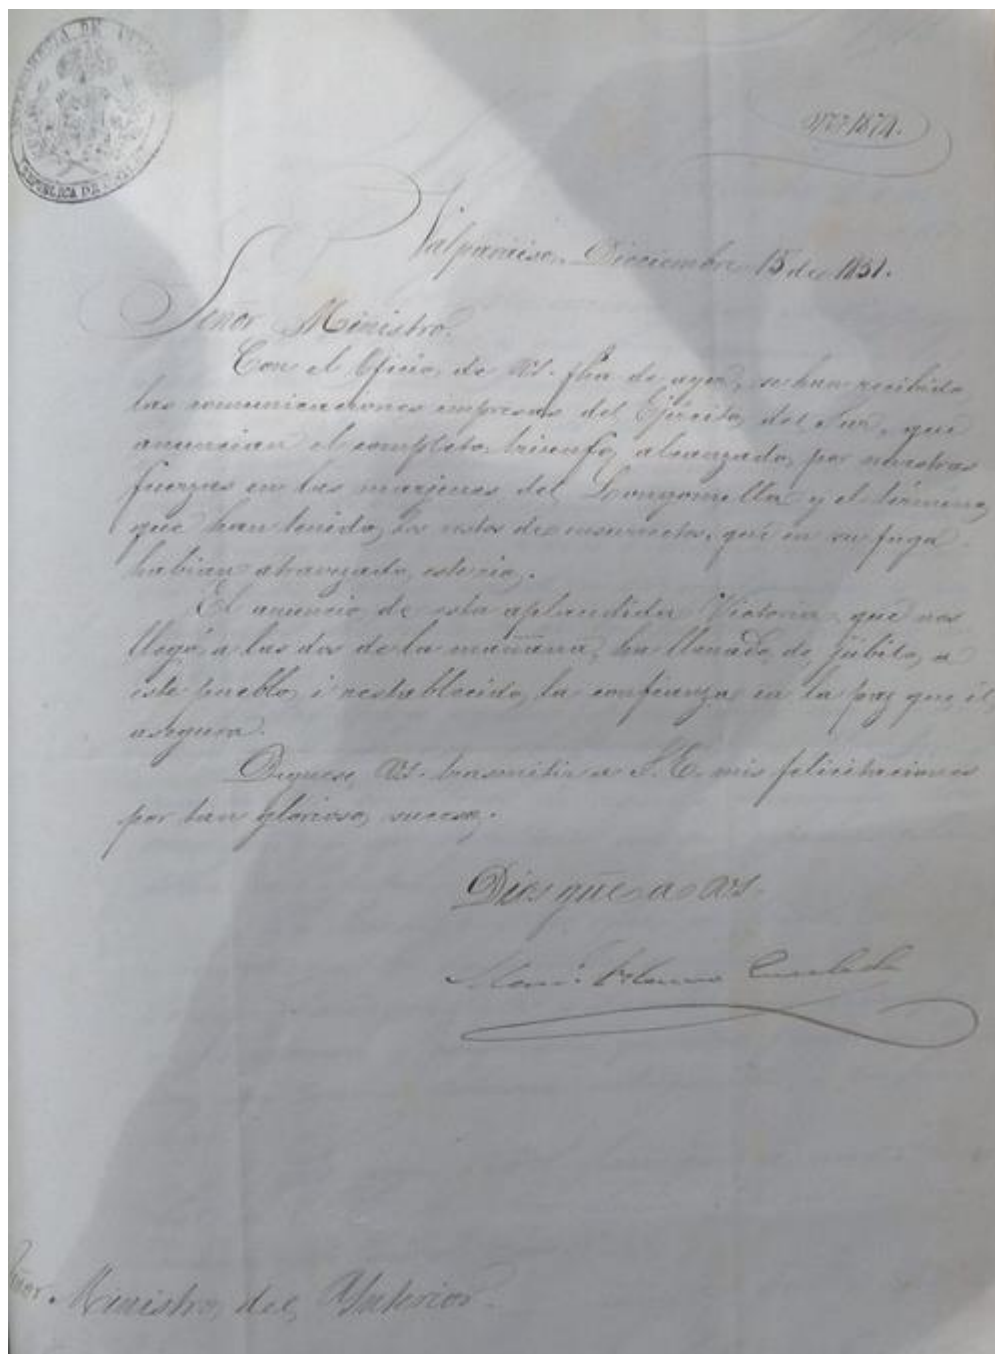 REPUBLICA DE
Nº 1871.
Valparaiso Diciembre 15 de 1851.
Señor Ministro.
Con el Oficio de VS. fha de ayer, se han recibido
las comunicaciones impresas del Ejército del Sur, que
anuncian el completo triunfo, alcanzado, por nuestras
fuerzas en las marjenes del Longomilla y el término,
que han tenido, los restos de insurrectos, que en su fuga
habian atravezado, este rio,.
El anuncio de esta aplaudida Victoria, que nos
llegó, a las dos de la mañana, ha llenado de júbilo, a
este pueblo, i restablecido, la confianza en la paz que, él,
asegura.
Dignese, VS. trasmitir a S.E. mis felicitaciones
por tan glorioso, suceso,.
Dios güe a VS.
Manl. Blanco Encalada
Señor. Ministro, del, Ynterior.